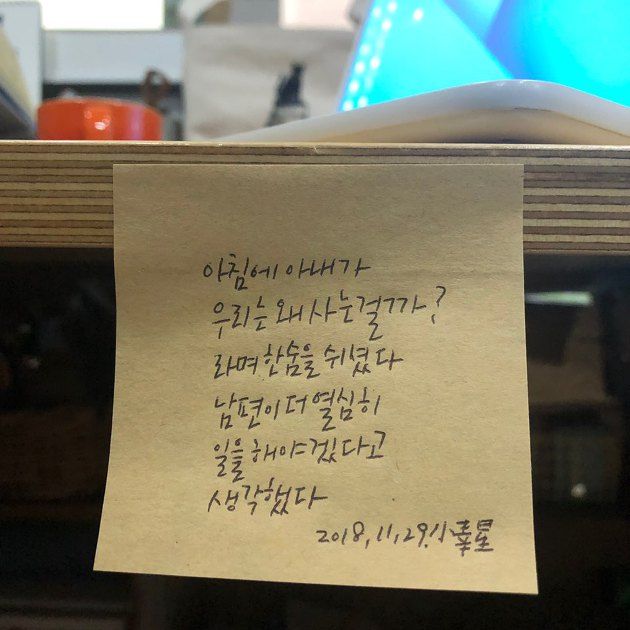 아침에 아내가
우리는 왜 사는걸까?
라며 한숨을 쉬셨다
남편이 더 열심히
일을 해야겠다고
생각했다
2018, 11, 29. 小